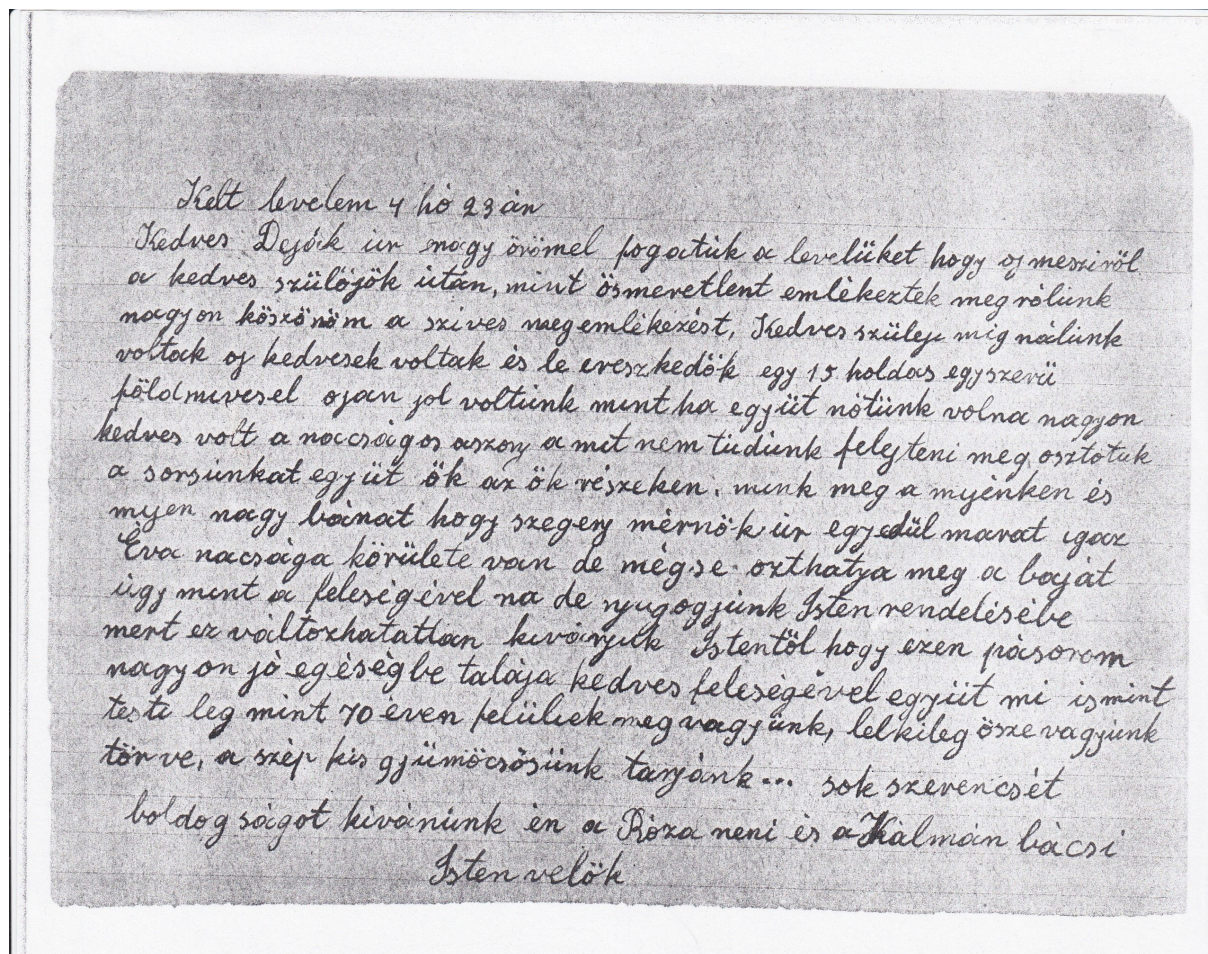 Kelt levelem 4 hó 23 án
Kedves Deják ur nagy örömel fogatuk a levelüket hogy oj mesziröl
a kedves szülöjök után, mint ösmeretlent emlékeztek meg rólunk
nagyon köszönöm a szives megemlékezést, Kedves szüleji mig nálunk
voltak oj kedvesek voltak és le ereszkedök egy 15 holdas egyszerü
földmivesel ojan jol voltunk mint ha együt nötünk volna nagyon
kedves volt a nacságos aszony a mit nem tudunk felejteni meg osztotuk
a sorsunkat együt ök az ök részeken, mink meg a mjénken és
mjen nagy bánat hogy szegény mérnök ur egyedül marat igaz
Éva nacsága körülete van de mégse oszthatja meg a baját
úgy mint a feleségével na de nyugogjunk Isten rendelésébe
mert ez változhatatlan kivánjuk Istentöl hogy ezen pásorom
nagyon jó egéségbe talája kedves feleségével együt mi is mint
testi leg mint 70 éven felüliek meg vagyunk, lelkilegösze vagyunk
törve, a szép kis gyümöcsösünk tanjánk... sok szerencsét
boldogságot kivánunk én a Róza neni és a Kálmán bácsi
Isten velök